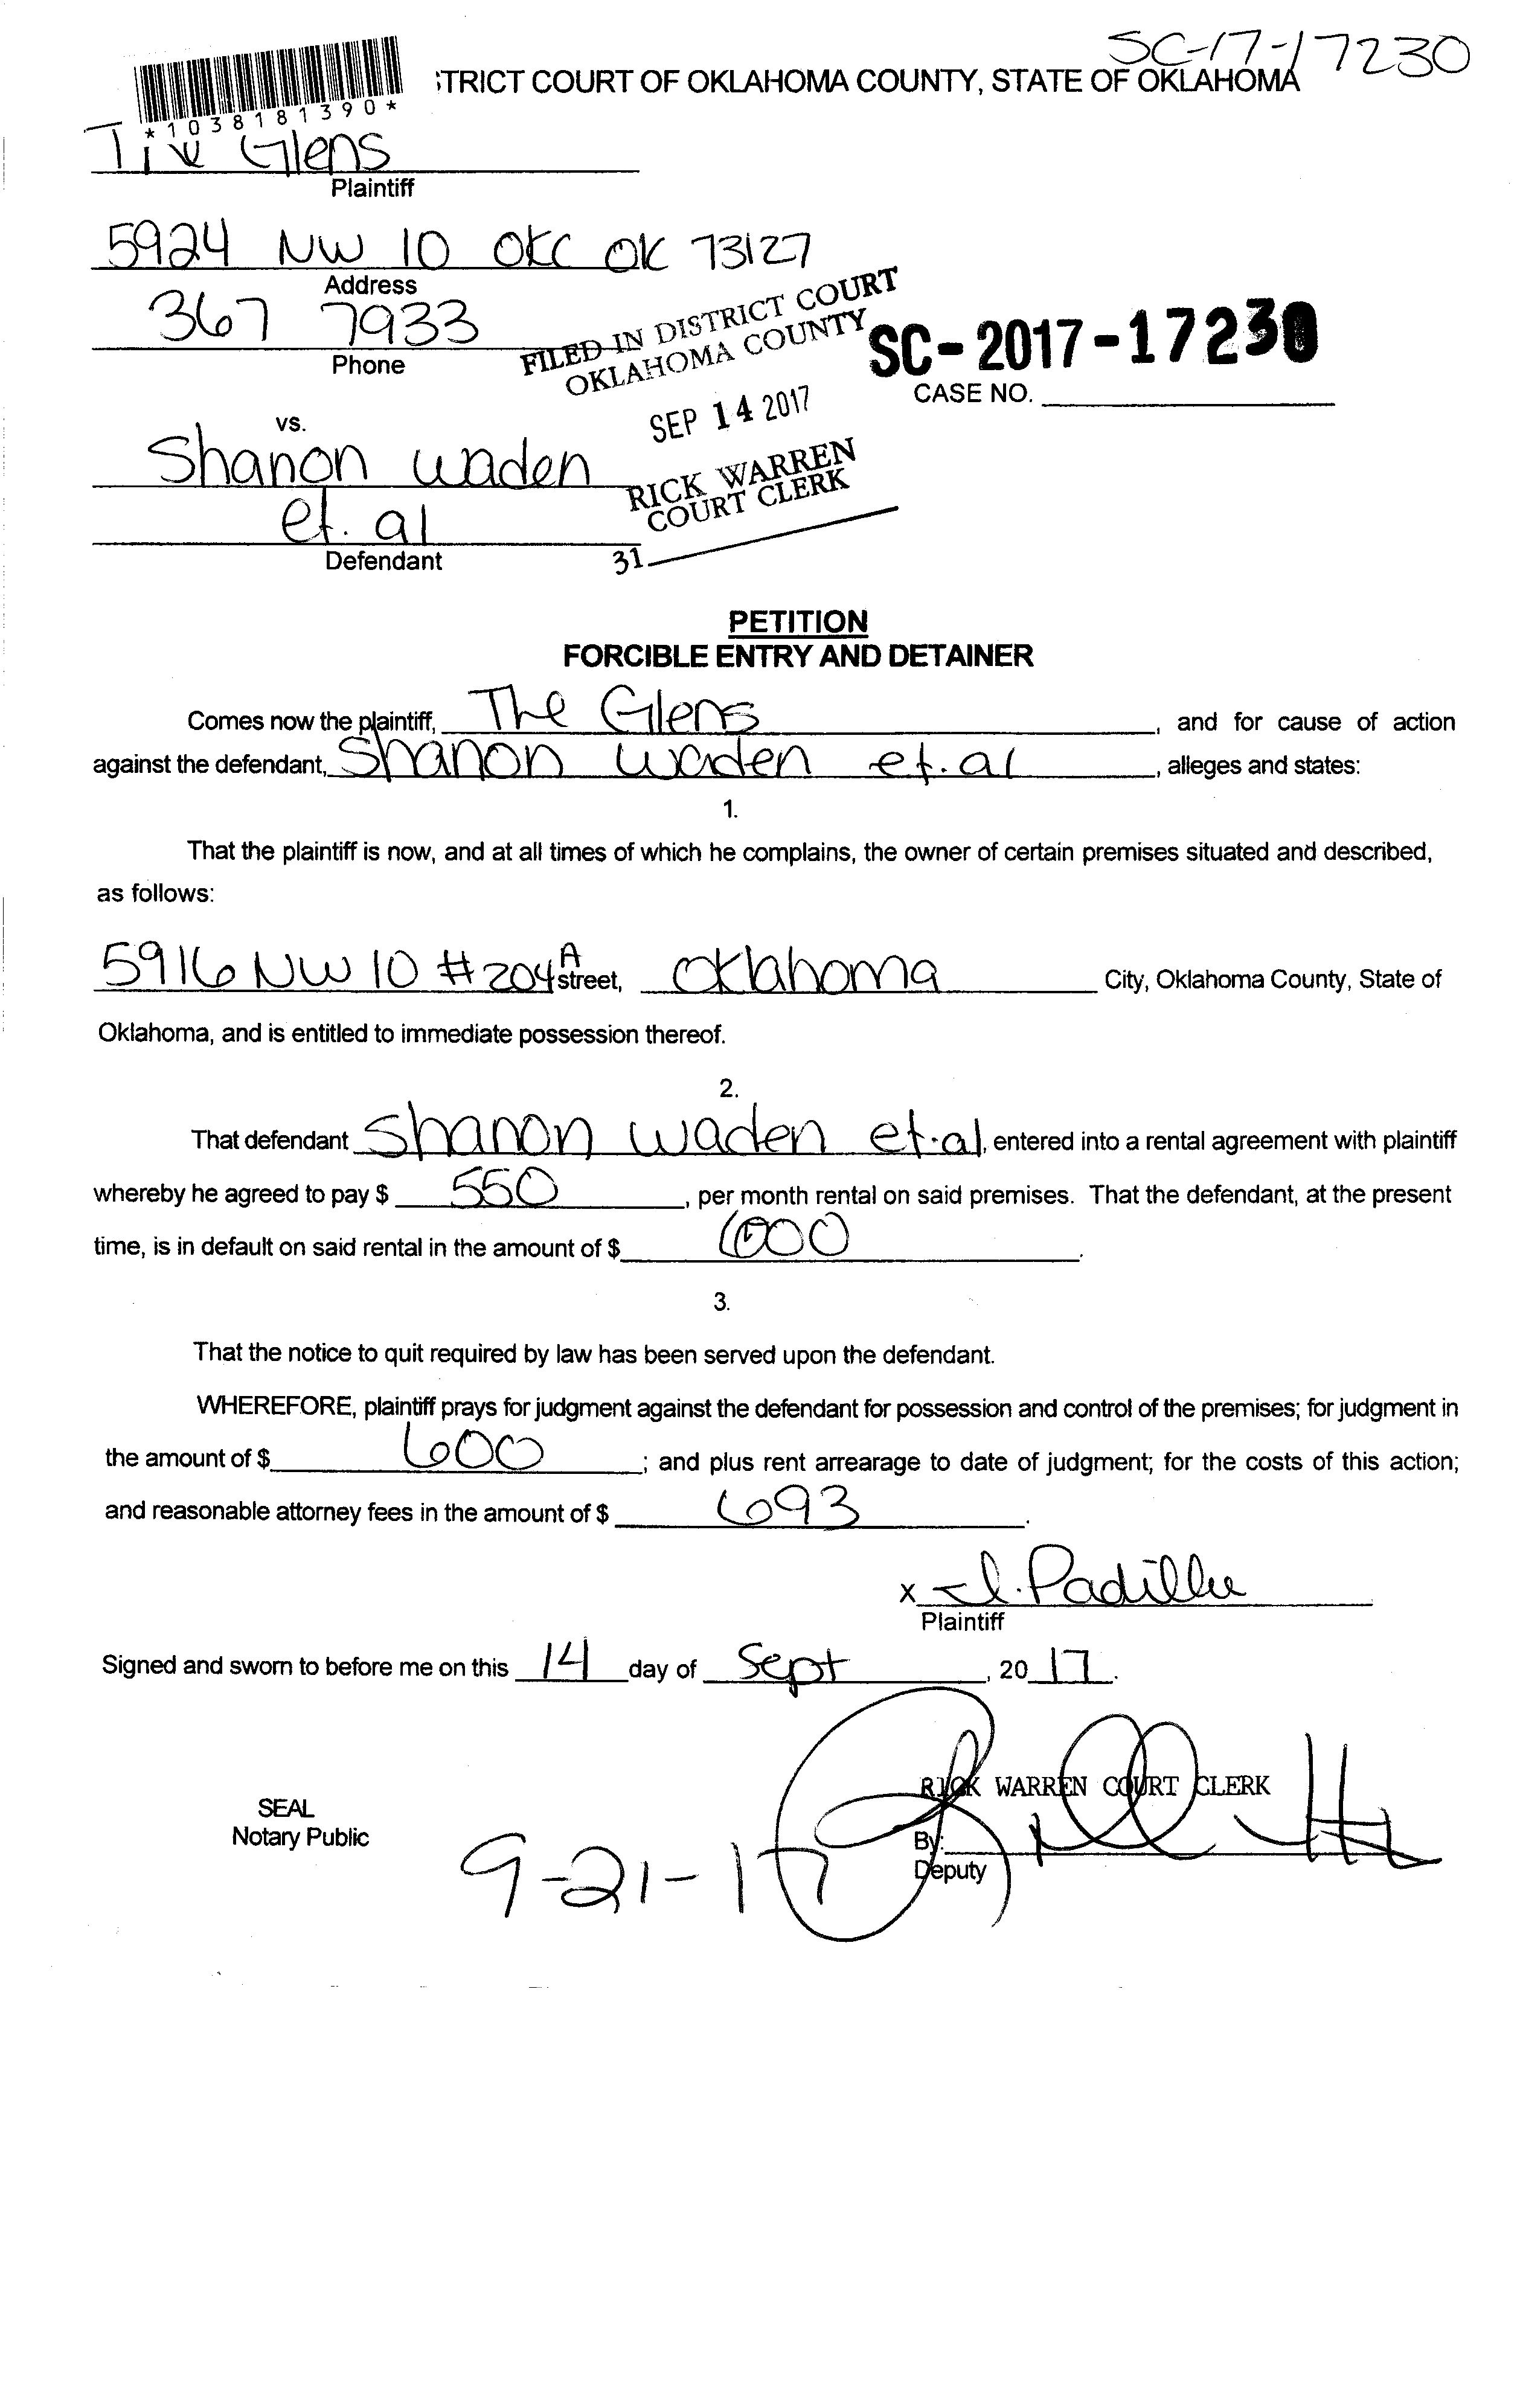 SC-17-17230
TRICT COURT OF OKLAHOMA COUNTY, STATE OF OKLAHOMA
*1038181390*
The Glens
Plaintiff
5924 NW 10 OKC OK 73127
Address
367 7933
Phone
FILED IN DISTRICT COURT
OKLAHOMA COUNTY
SC-2017-17230
CASE NO.
SEP 14 2017
vs.
Shanon waden
RICK WARREN
COURT CLERK
et. al
31
Defendant
PETITION
FORCIBLE ENTRY AND DETAINER
Comes now the plaintiff, The Glens, and for cause of action
against the defendant, Shanon waden et. al, alleges and states:
1.
That the plaintiff is now, and at all times of which he complains, the owner of certain premises situated and described,
as follows:
5916 NW 10 #204 A street, Oklahoma City, Oklahoma County, State of
Oklahoma, and is entitled to immediate possession thereof.
2.
That defendant Shanon waden et. al, entered into a rental agreement with plaintiff
whereby he agreed to pay $ 550, per month rental on said premises. That the defendant, at the present
time, is in default on said rental in the amount of $ 600.
3.
That the notice to quit required by law has been served upon the defendant.
WHEREFORE, plaintiff prays for judgment against the defendant for possession and control of the premises; for judgment in
the amount of $ 600; and plus rent arrearage to date of judgment; for the costs of this action;
and reasonable attorney fees in the amount of $ 693.
x J. Padilla
Plaintiff
Signed and sworn to before me on this 14 day of Sept, 2017.
RICK WARREN COURT CLERK
SEAL
Notary Public
By:
Deputy
9-21-17